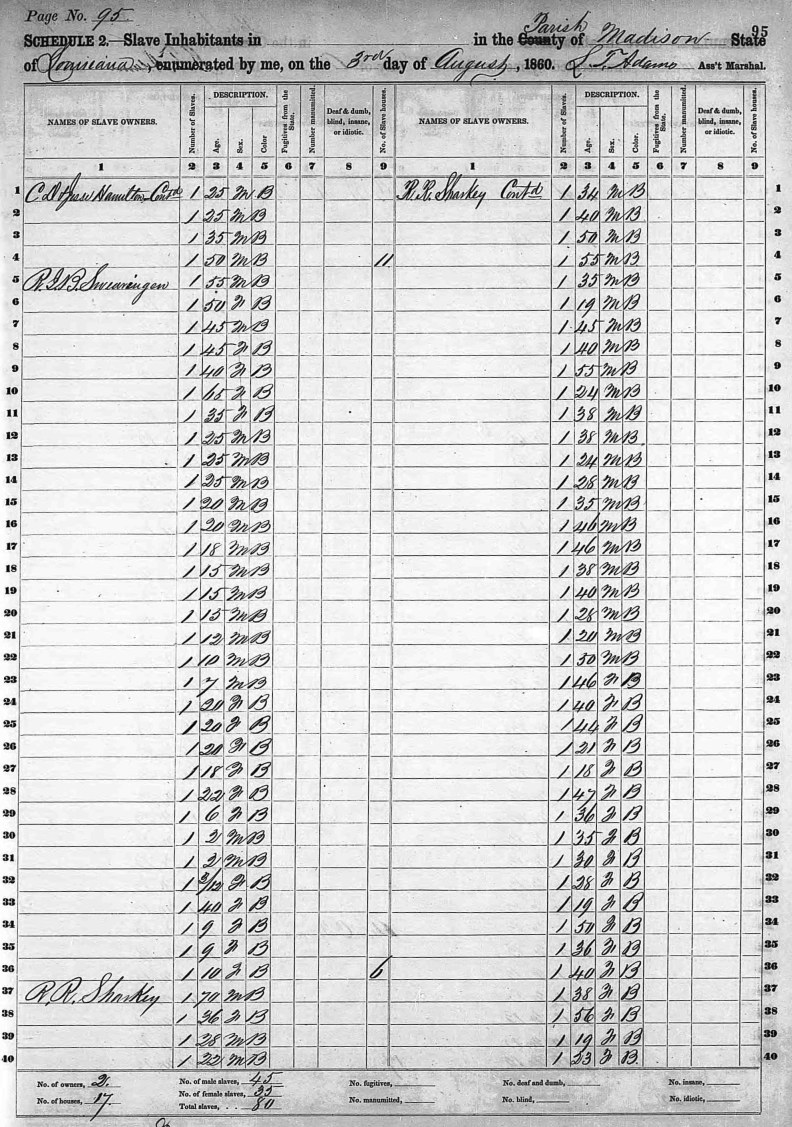 Page No. 95
95
SCHEDULE 2.—Slave Inhabitants in in the County Parish of Madison State
of Louisiana, enumerated by me, on the 3rd day of August, 1860. L. T. Adams Ass't Marshal.
NAMES OF SLAVE OWNERS. Number of Slaves. DESCRIPTION. Age. Sex. Color. Fugitives from the State. Number manumitted. Deaf & dumb, blind, insane, or idiotic. No. of Slave houses. NAMES OF SLAVE OWNERS. Number of Slaves. DESCRIPTION. Age. Sex. Color. Fugitives from the State. Number manumitted. Deaf & dumb, blind, insane, or idiotic. No. of Slave houses.
1 2 3 4 5 6 7 8 9 1 2 3 4 5 6 7 8 9
1 C. D. & Jesse Hamilton Contd 1 25 M B R. R. Sharkey Contd 1 34 M B 1
2 1 25 M B 1 40 M B 2
3 1 35 M B 1 50 M B 3
4 1 50 M B 11 1 55 M B 4
5 Swearingen 1 55 M B 1 35 M B 5
6 1 50 F B 1 19 M B 6
7 1 45 M B 1 45 M B 7
8 1 45 F B 1 40 M B 8
9 1 40 F B 1 55 M B 9
10 1 65 F B 1 24 M B 10
11 1 35 F B 1 38 M B 11
12 1 25 M B 1 38 M B 12
13 1 25 M B 1 24 M B 13
14 1 25 M B 1 28 M B 14
15 1 20 M B 1 35 M B 15
16 1 20 M B 1 46 M B 16
17 1 18 M B 1 46 M B 17
18 1 15 M B 1 38 M B 18
19 1 15 M B 1 40 M B 19
20 1 15 M B 1 28 M B 20
21 1 12 M B 1 20 M B 21
22 1 10 M B 1 50 M B 22
23 1 7 M B 1 46 F B 23
24 1 20 F B 1 40 F B 24
25 1 20 F B 1 44 F B 25
26 1 20 F B 1 21 F B 26
27 1 18 F B 1 18 F B 27
28 1 22 F B 1 47 F B 28
29 1 6 F B 1 36 F B 29
30 1 2 M B 1 35 F B 30
31 1 2 M B 1 30 F B 31
32 1 3/12 F B 1 28 F B 32
33 1 40 F B 1 19 F B 33
34 1 9 F B 1 50 F B 34
35 1 9 F B 1 36 F B 35
36 1 10 F B 6 1 40 F B 36
37 R. R. Sharkey 1 70 M B 1 38 F B 37
38 1 36 F B 1 56 F B 38
39 1 28 M B 1 19 F B 39
40 1 22 M B 1 23 F B 40
No. of owners, 2. No. of male slaves, 45 No. fugitives, No. deaf and dumb, No. insane,
No. of houses, 17 No. of female slaves, 35 No. manumitted, No. blind, No. idiotic,
Total slaves, 80